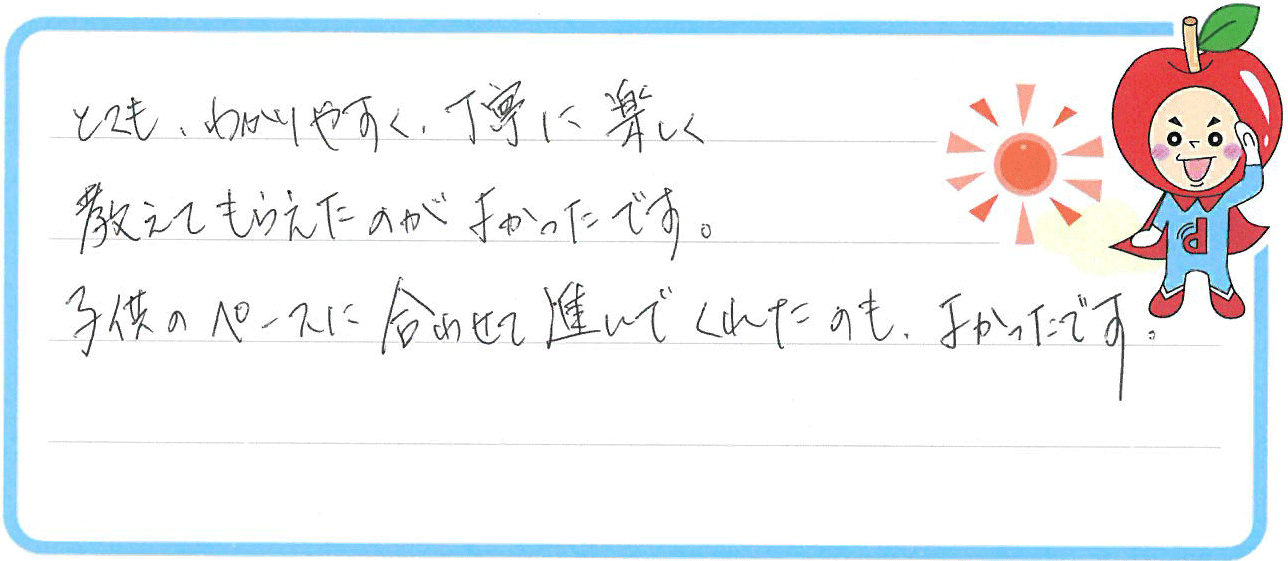 とても、わかりやすく、丁寧に楽しく
教えてもらえたのがよかったです。
子供のペースに合わせて進んでくれたのも、よかったです。
P